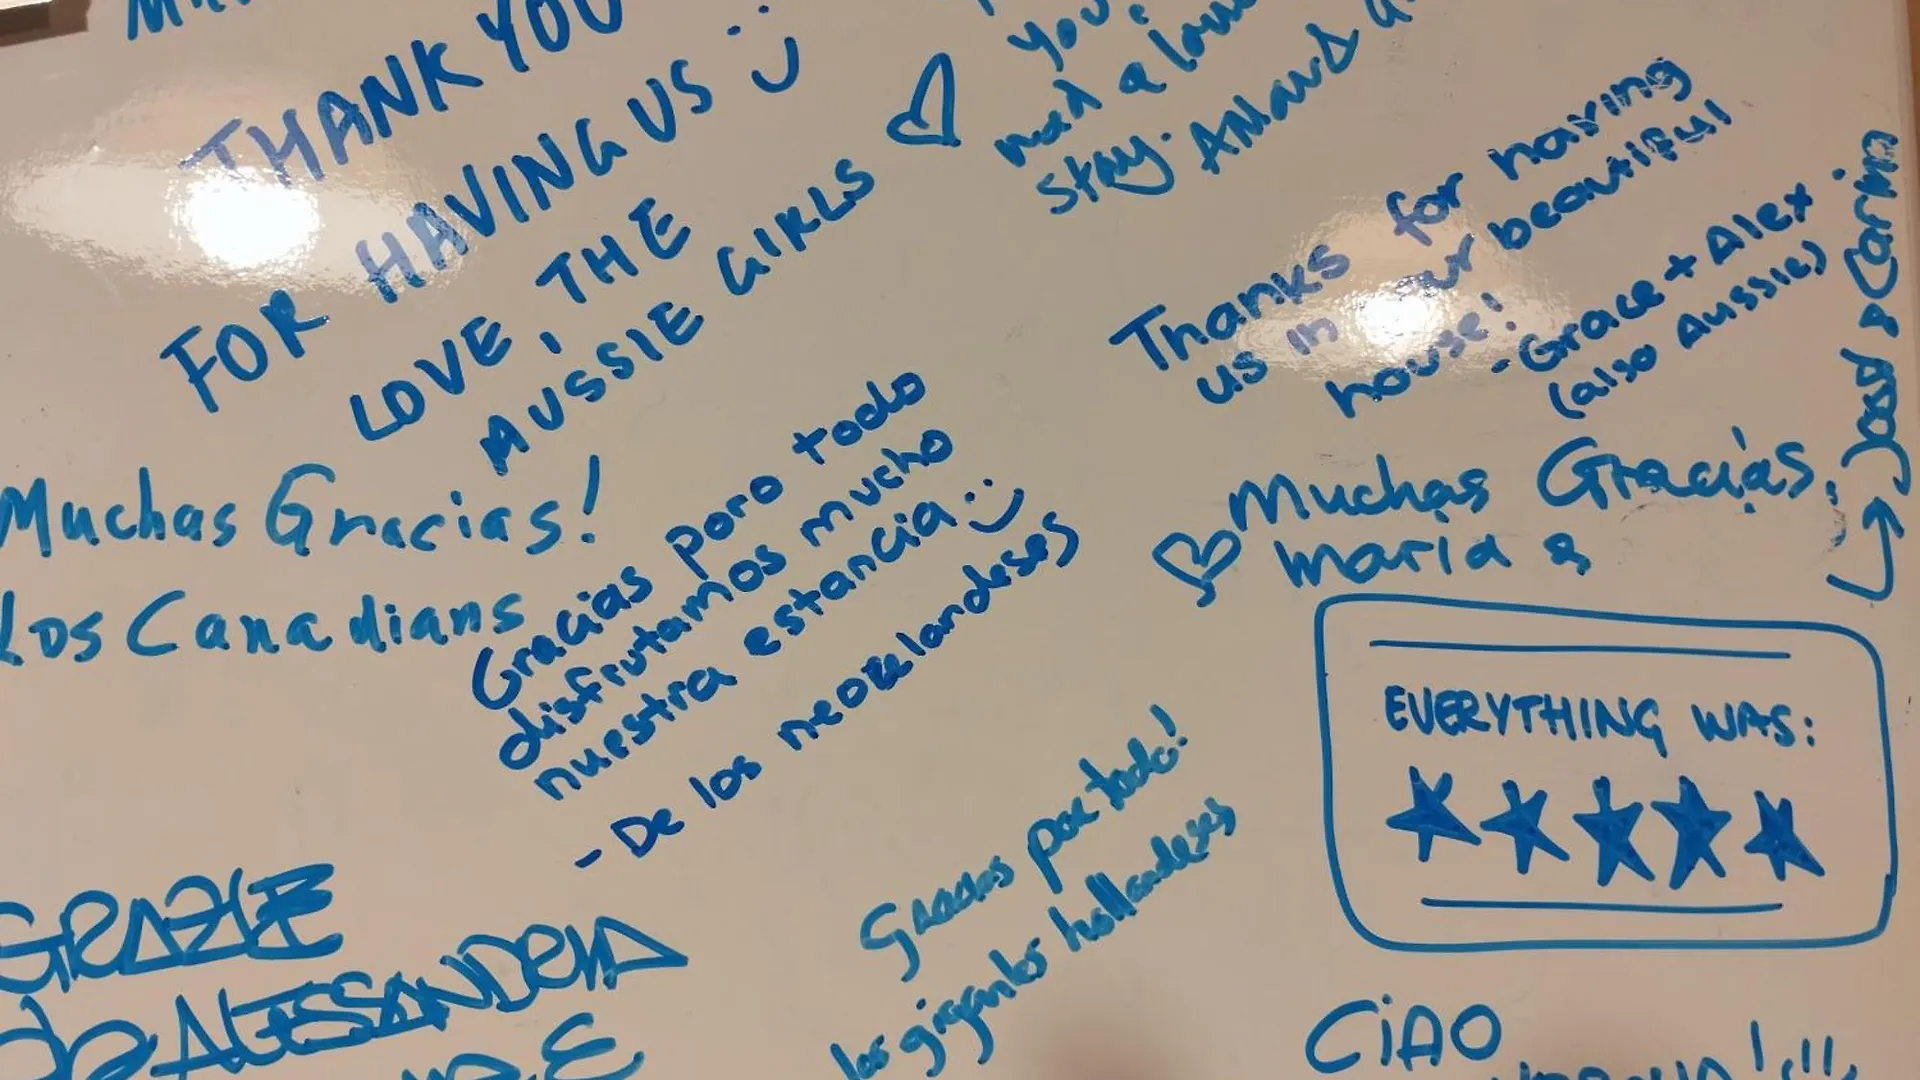 THANK YOU
FOR HAVING US :)
LOVE, THE
AUSSIE GIRLS ♡
you
had a
stay.
Thanks for having
us in your beautiful
house!
- Grace + Alex
(also Aussies)
Muchas Gracias!
Los Canadians
Gracias poro todo
disfrutamos mucho
nuestra estancia :)
- De los neozelandeses
♡ Muchas Gracias,
maria &
Jossi & Carina
EVERYTHING WAS:
★★★★★
Gracias por todo!
los gigantes hollandeses
GRAZIE
da ALESSANDRA
E
CiAO